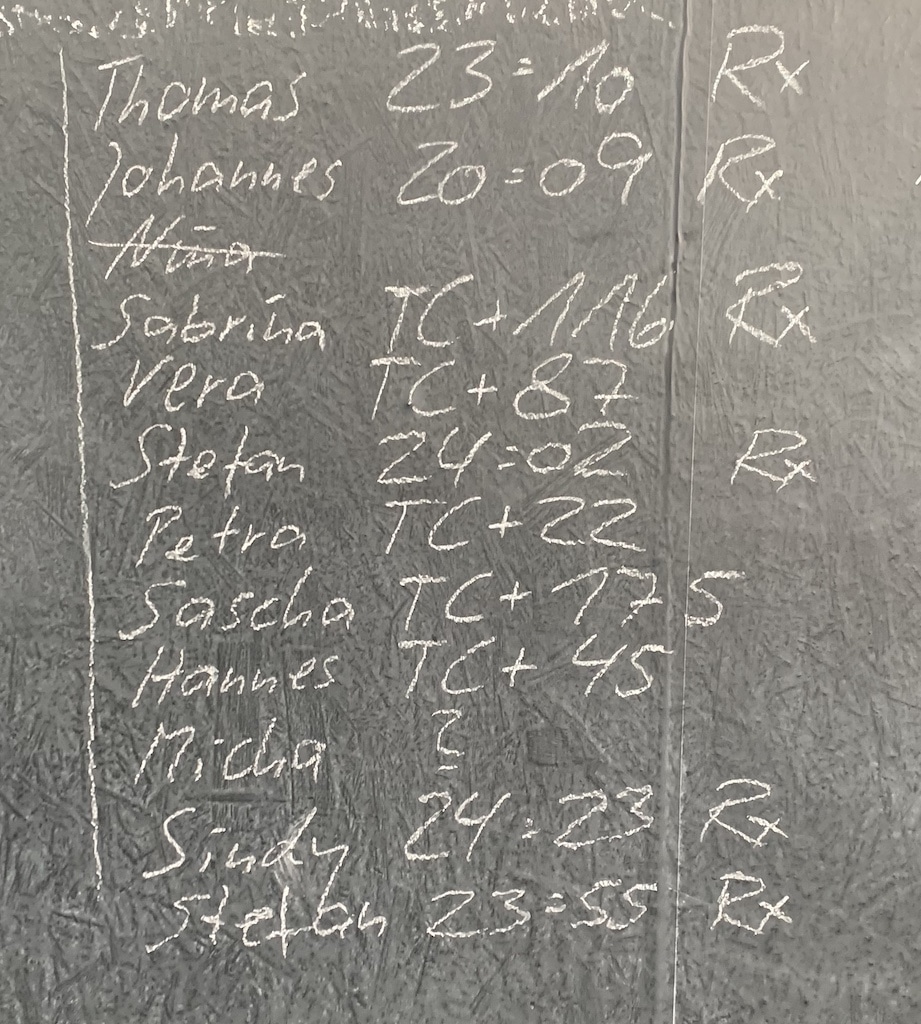 Thomas 23:10 Rx
Johannes 20:09 Rx
Nina
Sabrina TC+116 Rx
Vera TC+87
Stefan 24:02 Rx
Petra TC+22
Sascha TC+175
Hannes TC+45
Micha ?
Sindy 24:23 Rx
Stefan 23:55 Rx